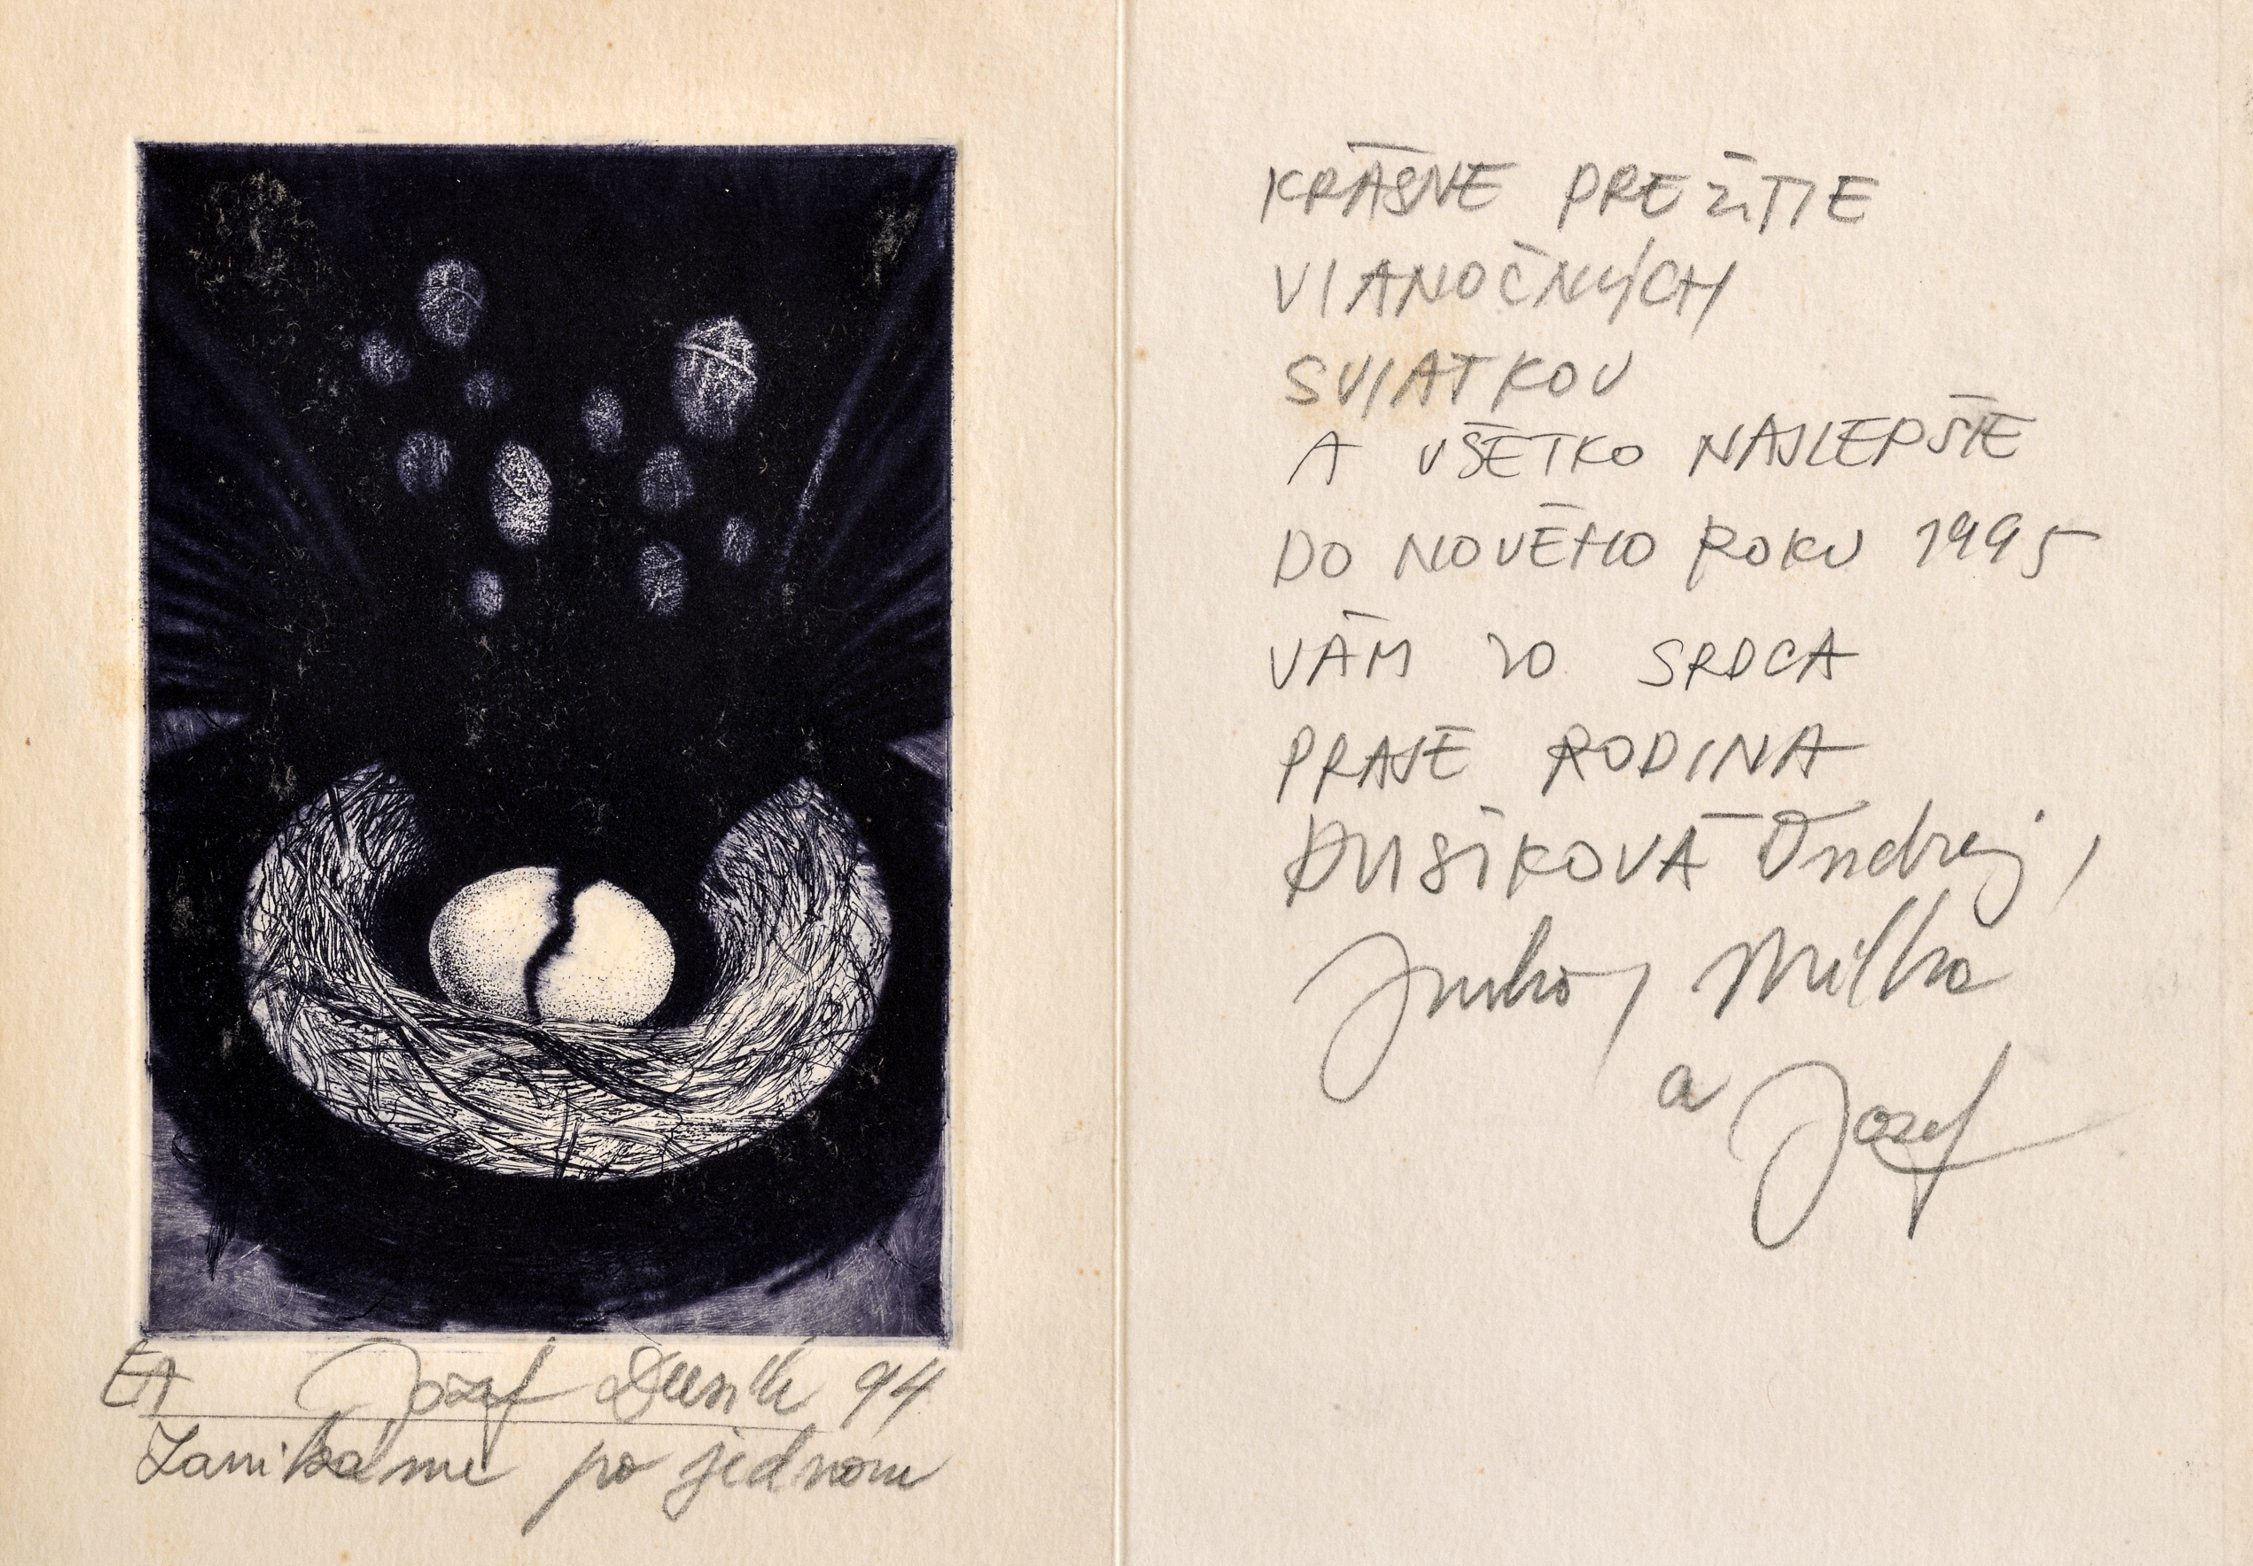 EA Jozef Dusík 94
Zanikáme po jednom
KRÁSNE PREŽITIE
VIANOČNÝCH
SVIATKOV
A VŠETKO NAJLEPŠIE
DO NOVÉHO ROKU 1995
VÁM ZO SRDCA
PRAJE RODINA
DUSÍKOVÁ Ondrej,
Julko, Milka
a Jozef